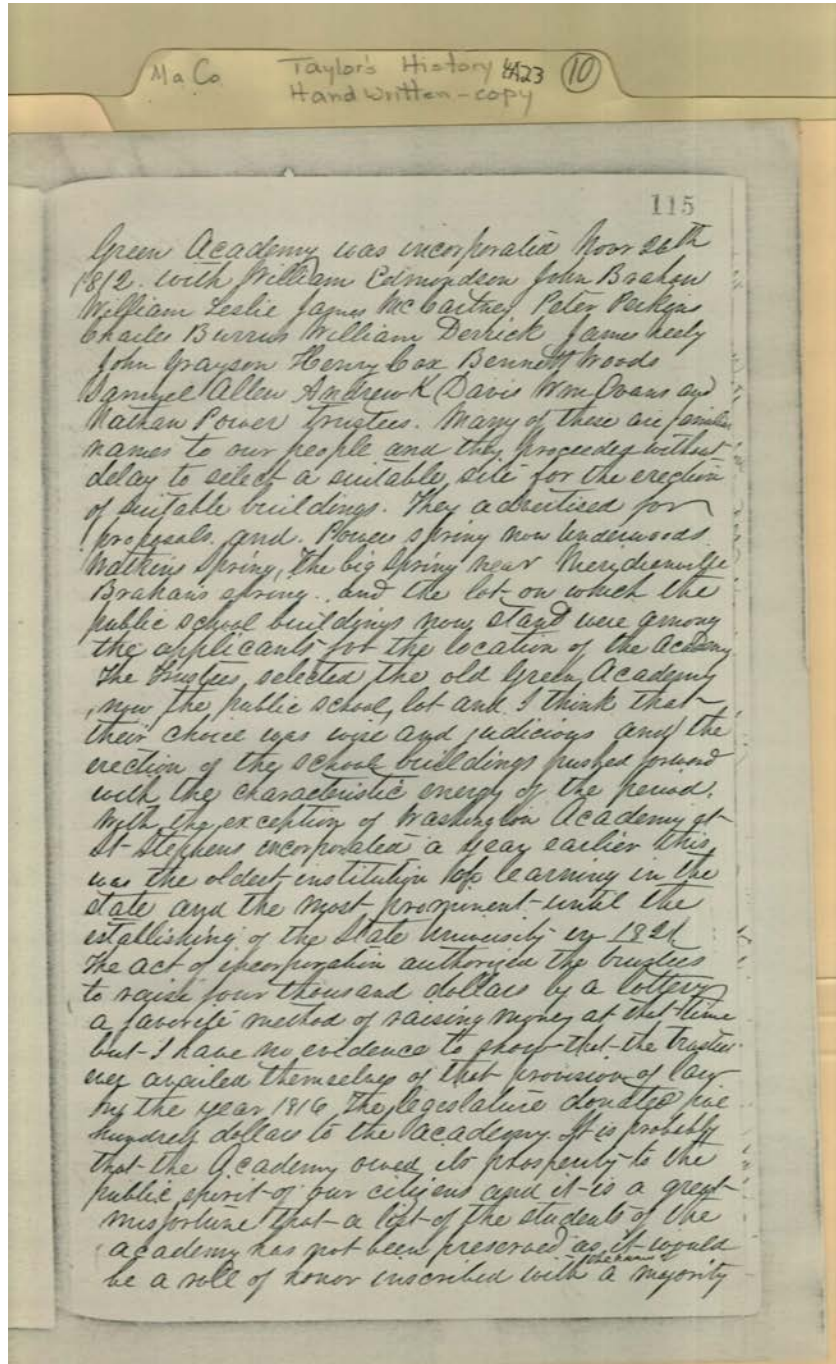 Ma Co Taylor's History 4A23 10
Hand written - copy
115
Green Academy was incorporated Novr 26th
1812. with William Edmondson John Brahan
William Leslie James McCartney Peter Perkins
Charles Burrus William Derrick James Neely
John Grayson Henry Cox Bennett Woods
Samuel Allen Andrew K Davis Wm Evans and
Nathan Power trustees. Many of these are familiar
names to our people and they proceeded without
delay to select a suitable site for the erection
of suitable buildings. They advertised for
proposals. and. Powers spring now Underwoods
Watkins Spring, The big Spring near Meridianville
Brahans spring.. and the lot on which the
public school buildings now stand were among
the applicants for the location of the Academy
The Trustees selected the old Green Academy
, now the public school, lot and I think that
their choice was wise and judicious and the
erection of the school buildings pushed forward
with the characteristic energy of the period.
With the exception of Washington Academy at
St Stephens incorporated a year earlier this
was the oldest institution of learning in the
state and the most prominent until the
establishing of the State University in 1821
The act of incorporation authorized the trustees
to raise four thousand dollars by a lottery
a favorite method of raising money at that time
but I have no evidence to show that the trustees
ever availed themselves of that provision of law
In the year 1816 The legislature donated five
hundred dollars to the academy. It is probably
that the Academy owed its prosperity to the
public spirit of our citizens and it is a great
misfortune that a list of the students of the
academy has not been preserved as it would
be a roll of honor inscribed with the names of a majority